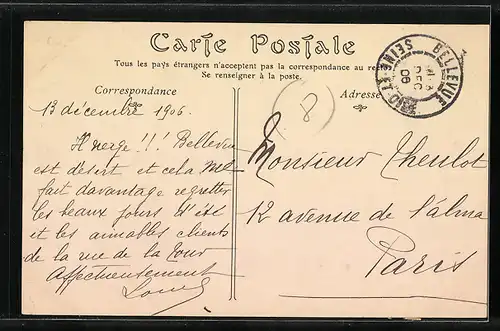 Carte Postale
Tous les pays étrangers n'acceptent pas la correspondance au
Se renseigner à la poste.
Correspondance
Adresse
BELLEVUE
SEINE ET OISE
13 DEC 06
13 décembre 1906.
Il neige !!! Bellevue
est désert et cela me
fait davantage regretter
les beaux jours d'été
et les aimables clients
de la rue de la Tour
Affectueusement
Monsieur Theulot
12 avenue de l'alma
Paris